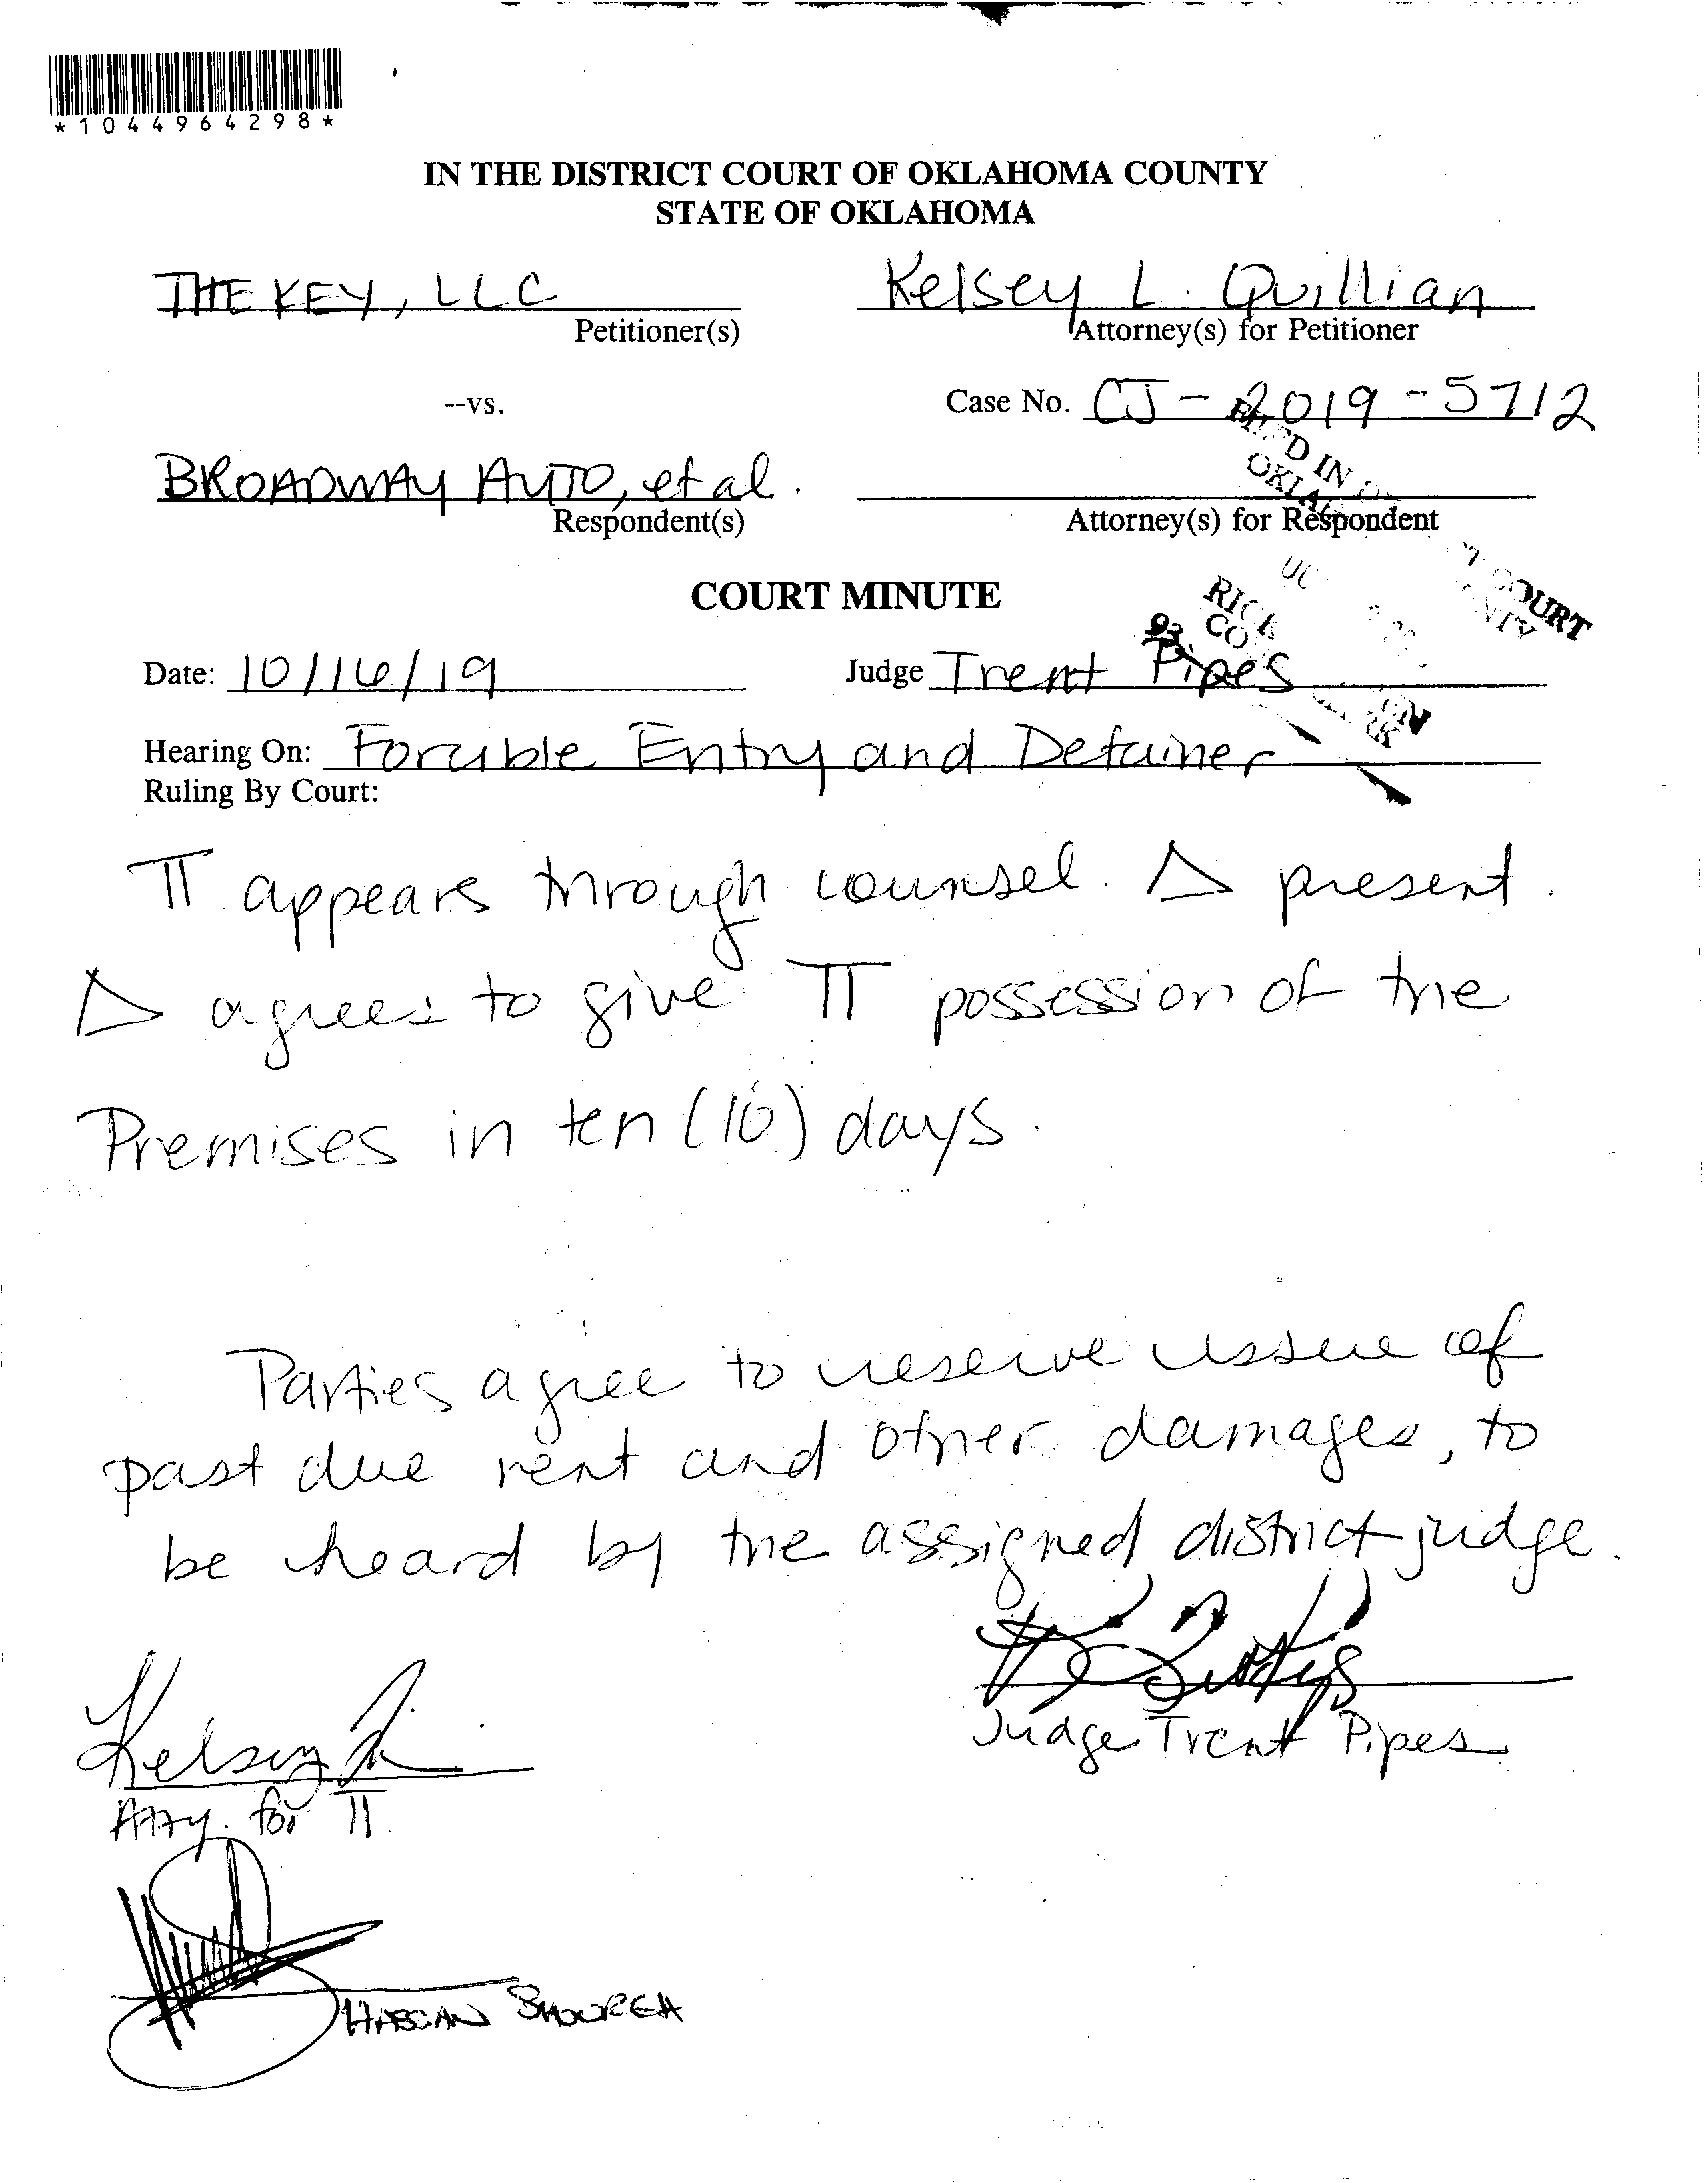 *1044964298*
IN THE DISTRICT COURT OF OKLAHOMA COUNTY
STATE OF OKLAHOMA
THE KEY, LLC
Petitioner(s)
Kelsey L. Quillian
Attorney(s) for Petitioner
--vs.
Case No. CJ-2019-5712
BROADWAY AUTO, et al.
Respondent(s)
Attorney(s) for Respondent
COURT MINUTE
Date: 10/16/19
Judge Trent Pipes
Hearing On: Forcible Entry and Detainer
Ruling By Court:
π appears through counsel. Δ present.
Δ agrees to give π possession of the
Premises in ten (10) days.
Parties agree to reserve issue of
past due rent and other damages, to
be heard by the assigned district judge.
Judge Trent Pipes
Kelsey
Atty. for π
HASSAN